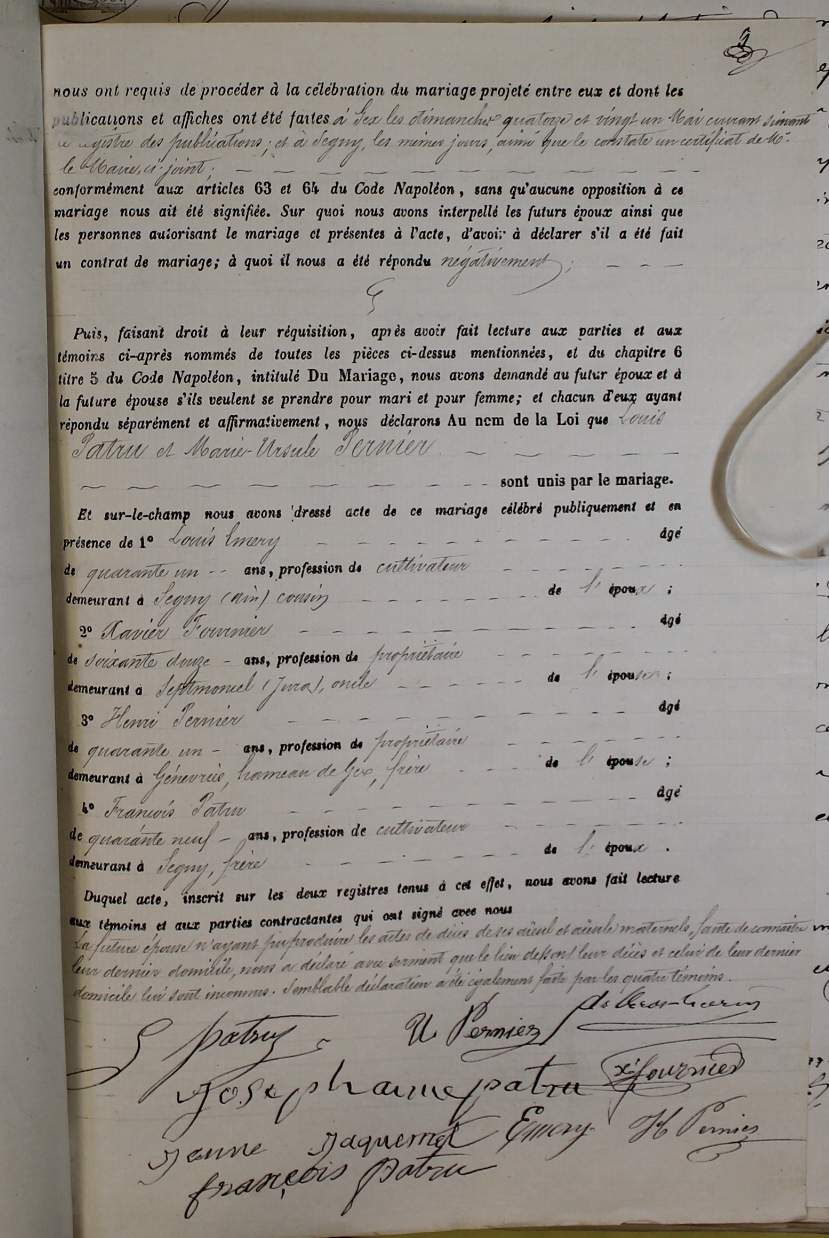 3
nous ont requis de procéder à la célébration du mariage projeté entre eux et dont les
publications et affiches ont été faites à Gex les dimanches quatorze et vingt un Mai courant suivant
le registre des publications; et à Segny, les mêmes jours, ainsi que le constate un certificat de Mr.
le Maire, ci-joint;
conformément aux articles 63 et 64 du Code Napoléon, sans qu'aucune opposition à ce
mariage nous ait été signifiée. Sur quoi nous avons interpellé les futurs époux ainsi que
les personnes autorisant le mariage et présentes à l'acte, d'avoir à déclarer s'il a été fait
un contrat de mariage; à quoi il nous a été répondu négativement;
Puis, faisant droit à leur réquisition, après avoir fait lecture aux parties et aux
témoins ci-après nommés de toutes les pièces ci-dessus mentionnées, et du chapitre 6
titre 5 du Code Napoléon, intitulé Du Mariage, nous avons demandé au futur époux et à
la future épouse s'ils veulent se prendre pour mari et pour femme; et chacun d'eux ayant
répondu séparément et affirmativement, nous déclarons Au nom de la Loi que Louis
Patru et Marie-Ursule Pernier
sont unis par le mariage.
Et sur-le-champ nous avons dressé acte de ce mariage célébré publiquement et en
présence de 1° Louis Emery âgé
de quarante un -- ans, profession de cultivateur
demeurant à Segny (Ain) cousin de l'époux;
2° Xavier Fournier âgé
de soixante douze - ans, profession de propriétaire
demeurant à Septmoncel (Jura), oncle de l'épouse;
3° Henri Pernier âgé
de quarante un - ans, profession de propriétaire
demeurant à Génevrié, hameau de Gex, frère de l'épouse;
4° François Patru âgé
de quarante neuf - ans, profession de cultivateur
demeurant à Segny, frère de l'époux.
Duquel acte, inscrit sur les deux registres tenus à cet effet, nous avons fait lecture
aux témoins et aux parties contractantes qui ont signé avec nous
La future épouse n'ayant pu produire les actes de décès de ses aïeul et aïeule maternels, faute de connaître
leur dernier domicile, nous a déclaré avec serment que le lieu de leur décès et celui de leur dernier
domicile lui sont inconnus. Semblable déclaration a été également faite par les quatre témoins.
L Patru U Pernier
Joseph patru x. fournier
Jeune Jaquemet Emery H Pernier
françois patru